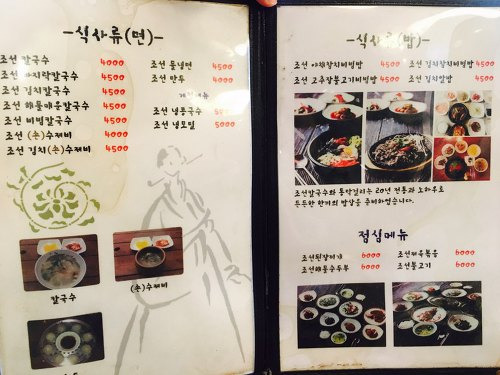 -식사류(면)-
조선 칼국수 4000
조선 바지락칼국수 4500
조선 김치칼국수 4500
조선 해물매운칼국수 4500
조선 비빔칼국수 4500
조선 (손)수제비 4500
조선 김치(손)수제비 4500
조선 물냉면 4500
조선 만두 4500
계절메뉴
조선 냉콩국수 5000
조선 냉모밀 5000
칼국수
(손)수제비
-식사류(밥)-
조선 야채참치비빔밥 4500
조선 김치참치비빔밥 4500
조선 고추장불고기비빔밥 4500
조선 김치알밥 4500
조선칼국수와 통닭걸리는 20년 전통과 노하우로
든든한 한끼의 밥상을 준비하였습니다.
점심메뉴
조선된장찌개 6000
조선제육볶음 6000
조선해물순두부 6000
조선불고기 6000